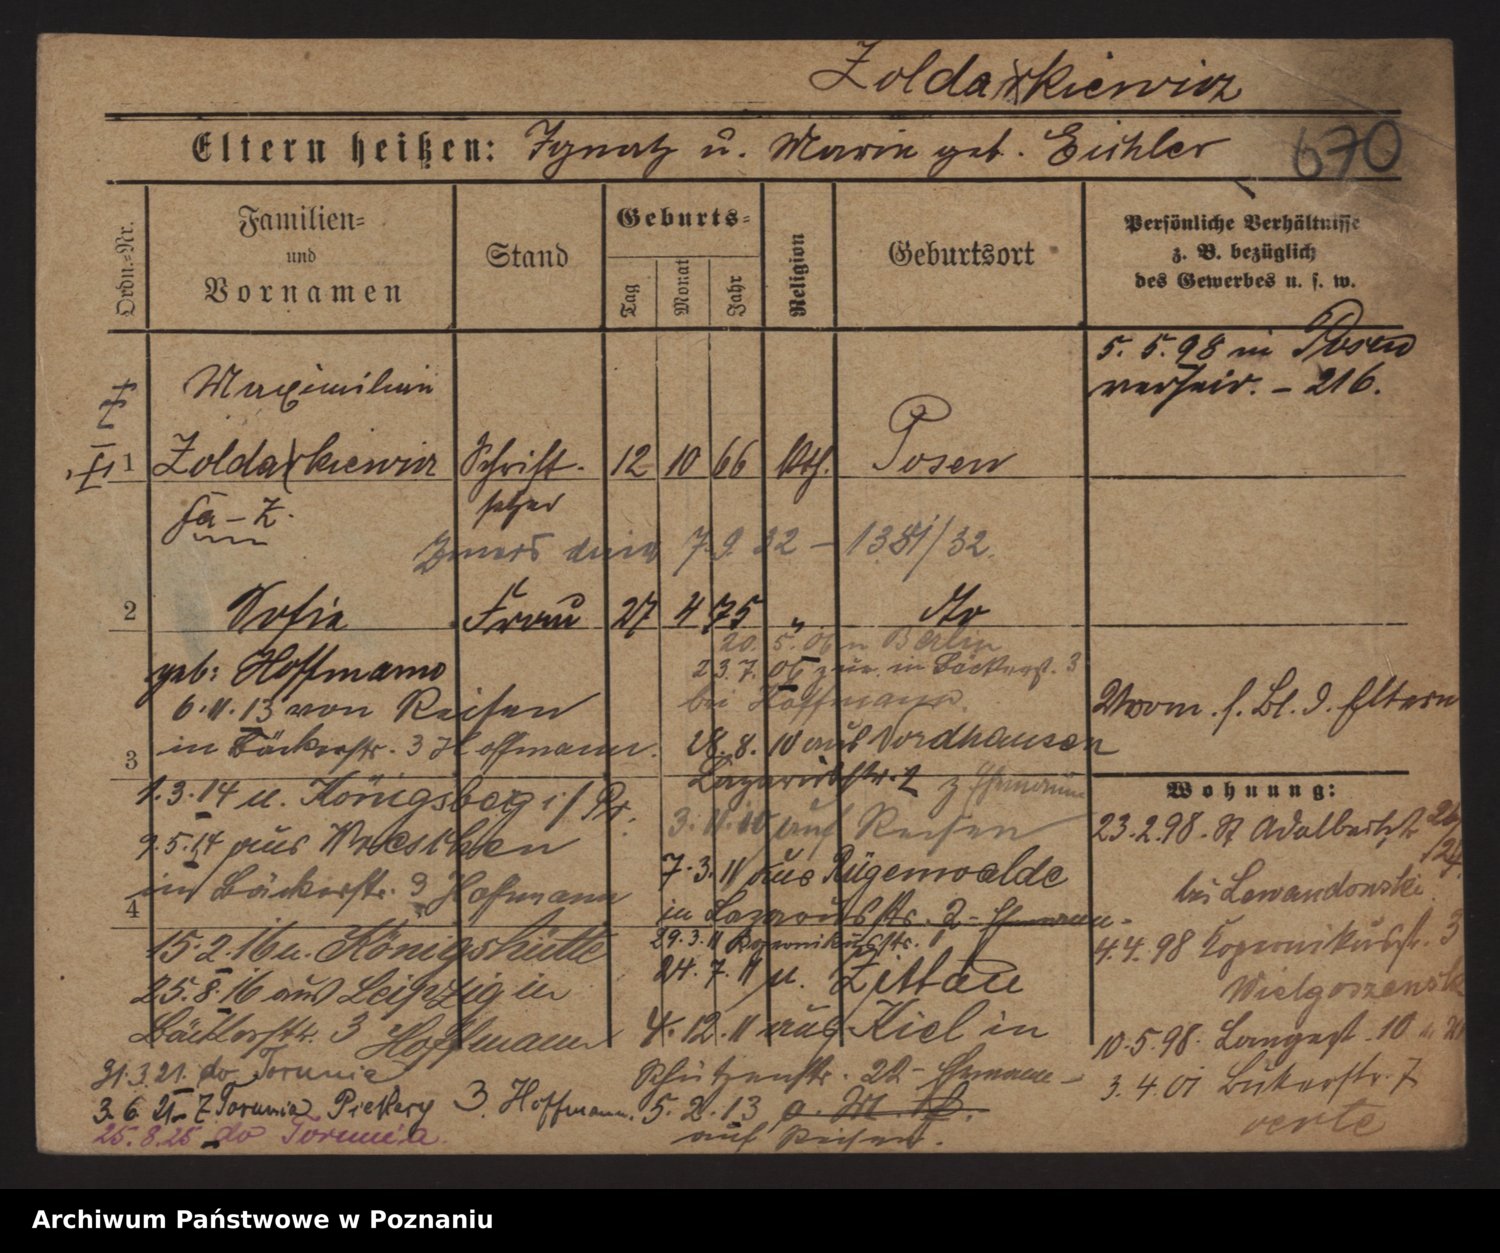 Zoldarkiewicz
Eltern heißen: Ignatz u. Marie geb. Eichler
670
Ordn.-Nr.
Familien-
und
Vornamen
Stand
Geburts-
Tag
Monat
Jahr
Religion
Geburtsort
Persönliche Verhältnisse
z. B. bezüglich
des Gewerbes u. s. w.
5. 5. 98 in Posen
verheir. - 216.
Maximilian
1 Zoldarkiewicz Schrift- 12 10 66 kth. Posen
setzer
7. 9. 32 - 1381/32.
2 Sofie Frau 27 4 75 " dto
geb: Hoffmann
20. 5. 06 n Berlin
23. 7. 06 zur. in Bäckerst. 3
bei Hoffmann.
6. 11. 13 von Reisen
in Bäckerstr. 3 Hoffmann.
28. 8. 10 aus Nordhausen
Lazarusstr. 2 z Ehemann
3
1. 3. 14 u. Königsberg i/Pr.
9. 5. 14 aus Wreschen
in Bäckerstr. 3 Hoffmann
3. 11. 10 auf Reisen
7. 3. 11 aus Rügenwalde
in Lazarusstr. 2 - Ehemann -
4
15. 2. 16 u. Königshütte
25. 8. 16 aus Leipzig in
Bäckerstr. 3 Hoffmann
29. 3. 11 Kopernikusstr. 1
24. 7. 11 u. Zittau
4. 12. 11 aus Kiel in
Schützenstr. 22 - Ehemann -
5. 2. 13
auf Reisen.
31. 3. 21. do Torunia
3. 6. 21 Z Torunia Piekary 3. Hoffmann.
25. 8. 25 do Torunia.
f. Bl. d. Eltern
Wohnung:
23. 2. 98. St Adalbertst. 26/
124.
bei Lewandowski.
4. 4. 98 Kopernikusstr. 3
10. 5. 98. Langest. 10
3. 4. 01 Bäkerstr. 7
verte
Archiwum Państwowe w Poznaniu